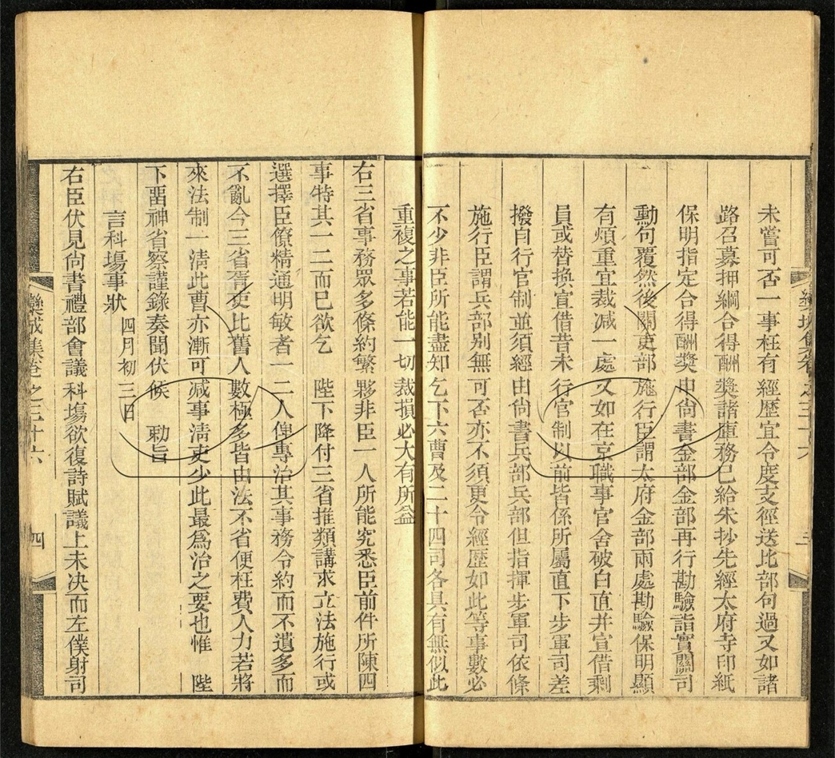 未嘗可否一事枉有經歷宜令度支徑送比部句過又如諸
路召募押綱合得酬獎諸庫務已給朱抄先經太府寺印紙
保明指定合得酬獎由尙書金部金部再行勘驗詣實關司
勳句覆然後關吏部施行臣謂太府金部兩處勘驗保明顯
有煩重宜裁減一處又如在京職事官舍破白直并宣借剩
員或替換宣借昔未行官制以前皆係所屬直下步軍司差
撥自行官制並須經由尙書兵部兵部但指揮步軍司依條
施行臣謂兵部別無可否亦不須更令經歷如此等事數必
不少非臣所能盡知乞下六曹及二十四司各具有無似此
重複之事若能一切裁損必大有所益
右三省事務眾多條約繁夥非臣一人所能究悉臣前件所陳四
事特其一二而已欲乞　陛下降付三省推類講求立法施行或
選擇臣僚精通明敏者一二人俾專治其事務令約而不遺多而
不亂今三省胥吏比舊人數極多皆由法不省便枉費人力若將
來法制一淸此曹亦漸可減事淸吏少此最爲治之要也惟　陛
下畱神省察謹錄奏聞伏候　勅旨
言科場事狀　四月初三日
右臣伏見尙書禮部會議科場欲復詩賦議上未决而左僕射司
欒城集卷之三十六
四